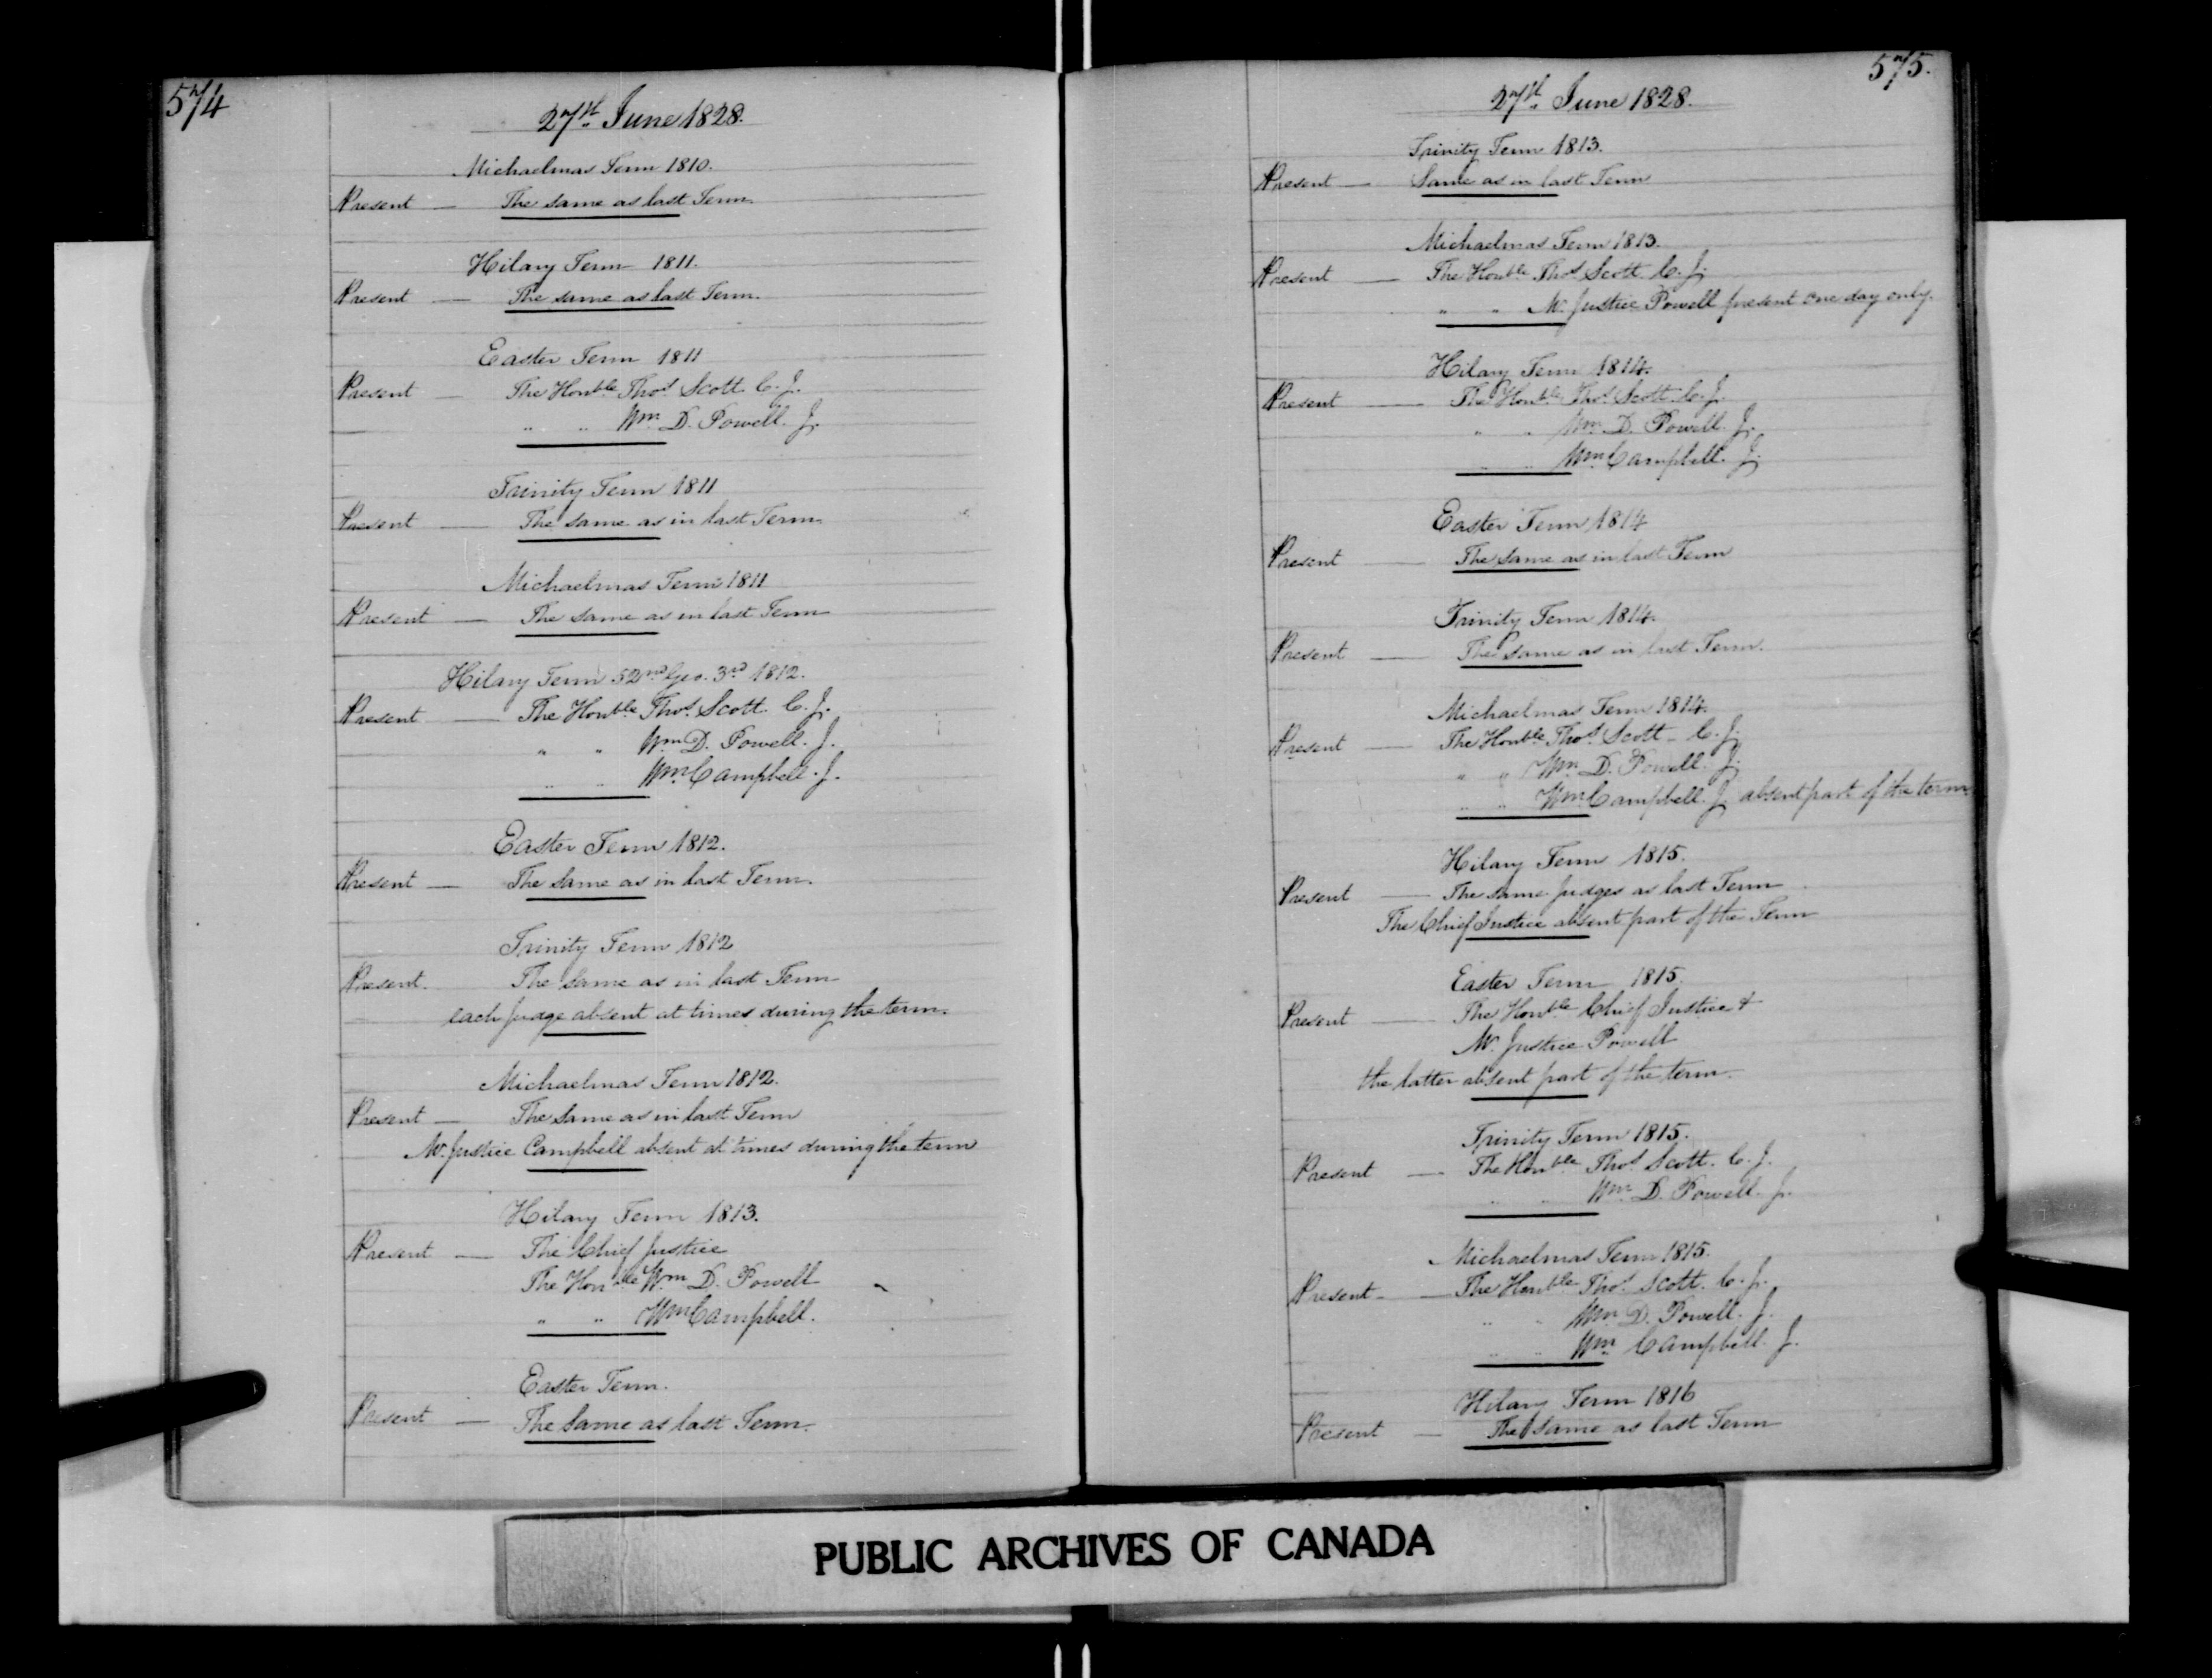 574
27th June 1828.
Michaelmas Term 1810.
Present — The same as last Term.
Hilary Term 1811.
Present — The same as last Term.
Easter Term 1811
Present — The Honble Thos. Scott. C. J.
" " Wm D. Powell. J.
Trinity Term 1811
Present — The same as in last Term.
Michaelmas Term 1811
Present — The same as in last Term
Hilary Term 52nd Geo. 3rd 1812.
Present — The Honble Thos. Scott. C. J.
" " Wm D. Powell. J.
" " Wm Campbell. J.
Easter Term 1812.
Present — The same as in last Term.
Trinity Term 1812
Present. The same as in last Term
each judge absent at times during the term.
Michaelmas Term 1812.
Present — The same as in last Term
Mr. Justice Campbell absent at times during the term
Hilary Term 1813.
Present — The Chief Justice
The Honble Wm D. Powell
" " Wm Campbell.
Easter Term.
Present — The same as last Term.
575.
27th June 1828.
Trinity Term 1813.
Present — Same as in last Term
Michaelmas Term 1813.
Present — The Honble Thos Scott. C. J.
" " Mr. Justice Powell present one day only.
Hilary Term 1814.
Present — The Honble Thos. Scott. C. J.
" " Wm D. Powell. J.
" " Wm Campbell. J.
Easter Term 1814
Present — The same as in last Term
Trinity Term 1814.
Present — The same as in last Term.
Michaelmas Term 1814.
Present — The Honble Thos. Scott — C. J.
" " Wm D. Powell. J.
" " Wm Campbell. J. absent part of the term.
Hilary Term 1815.
Present — The same judges as last Term
The Chief Justice absent part of the Term
Easter Term 1815.
Present — The Honble Chief Justice &
Mr. Justice Powell
the latter absent part of the term.
Trinity Term 1815.
Present — The Honble Thos Scott. C. J.
" " Wm D. Powell. J.
Michaelmas Term 1815.
Present — The Honble Thos. Scott. C. J.
" " Wm D. Powell. J.
" " Wm Campbell. J.
Hilary Term 1816
Present — The same as last Term
PUBLIC ARCHIVES OF CANADA